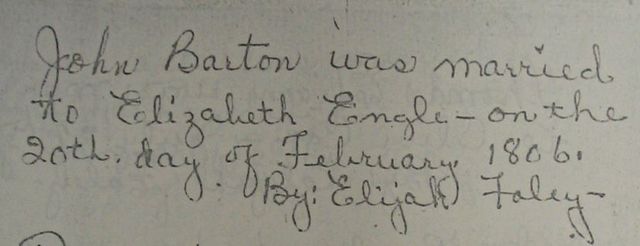 John Barton was married
to Elizabeth Engle - on the
20th. day of February 1806.
By: Elijah Foley -